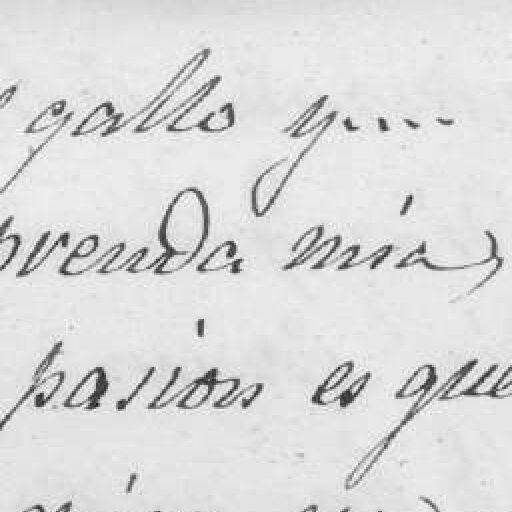 gallo y....
prenda mia,
pasion es que